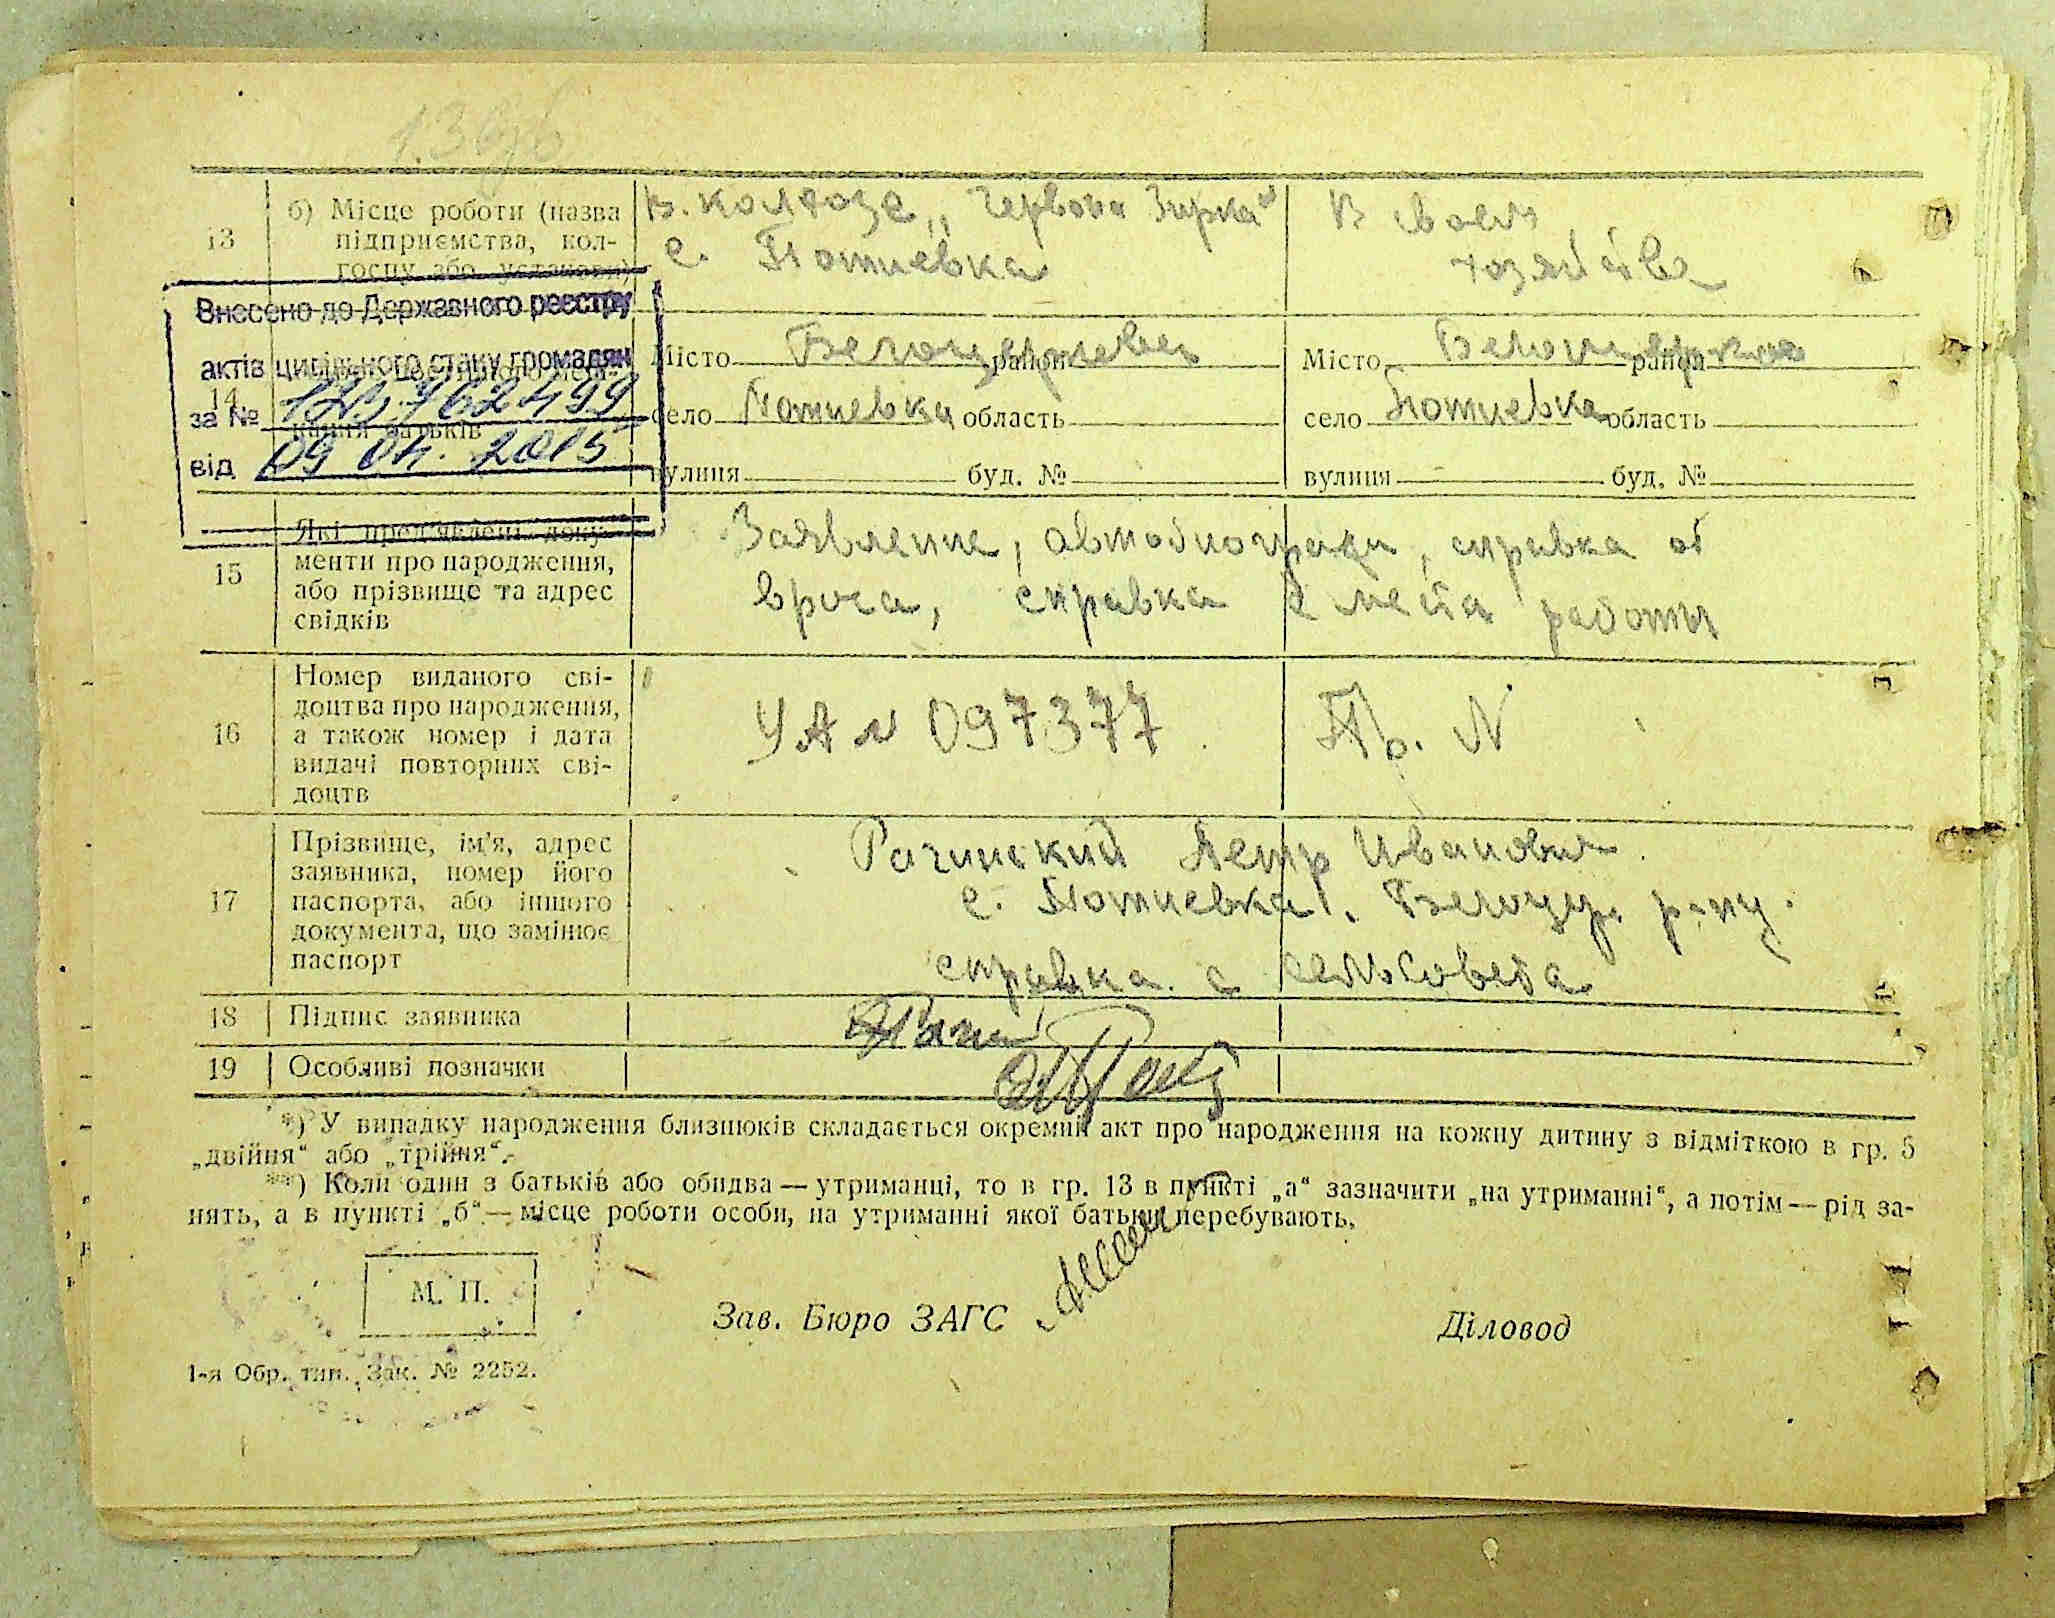 1396
13 б) Місце роботи (назва підприємства, колгоспу або установи)
в. колхозе „Червона Зирка“
с. Потиевка
В своем
хозяйстве
Внесено до Державного реєстру
актів цивільного стану громадян
за №
від 09 04. 2015
14
вання батьків
Місто Белоцерковец район
село Потиевка область
вулиця буд. №
Місто район
село Потиевка область
вулиця - буд. №
15 Які пред'явлені документи про народження, або прізвище та адрес свідків
Заявление, автобиография, справка от
врача, справка с места работы
16 Номер виданого свідоцтва про народження, а також номер і дата видачі повторних свідоцтв
УА N 097377
Пр. N
17 Прізвище, ім'я, адрес заявника, номер його паспорта, або іншого документа, що замінює паспорт
Рачинский Петр Иванович
с. Потиевка. Белоцер.
справка с сельсовета
18 Підпис заявника
19 Особливі позначки
*) У випадку народження близнюків складається окремий акт про народження на кожну дитину з відміткою в гр. 5
„двійня“ або „трійня“.
**) Коли один з батьків або обидва — утриманці, то в гр. 13 в пункті „а“ зазначити „на утриманні“, а потім — рід за-
нять, а в пункті „б“ — місце роботи особи, на утриманні якої батьки перебувають.
М. П.
Зав. Бюро ЗАГС
Діловод
1-я Обр. тип. Зак. № 2252.